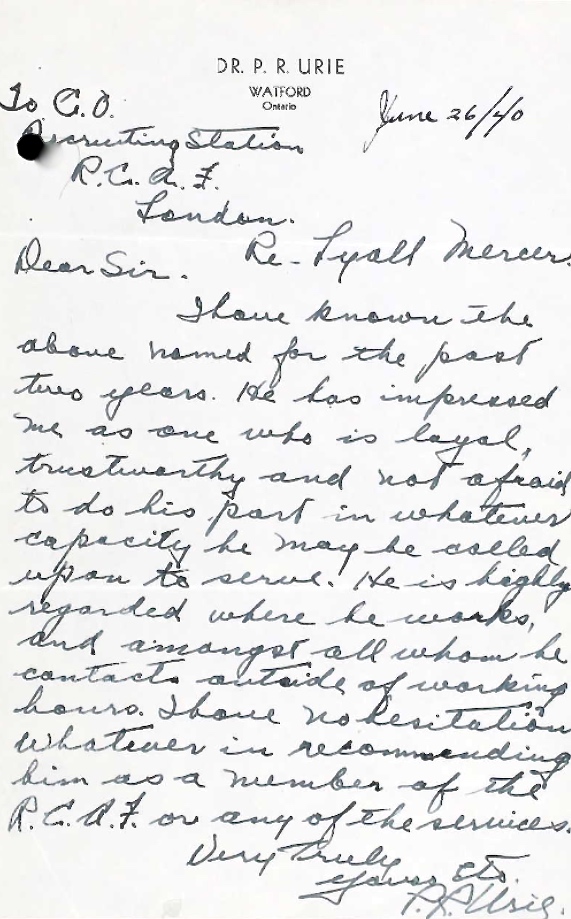 DR. P. R. URIE
WATFORD
Ontario
To C.O.
June 26/40
Recruiting Station
R.C.A.F.
London.
Re - Lyall Mercer.
Dear Sir.
I have known the
above named for the past
two years. He has impressed
me as one who is loyal,
trustworthy and not afraid
to do his part in whatever
capacity he may be called
upon to serve. He is highly
regarded where he works,
and amongst all whom he
contacts outside of working
hours. I have no hesitation
whatever in recommending
him as a member of the
R.C.A.F. or any of the services.
Very Truly
Yours etc.
P. R. Urie.